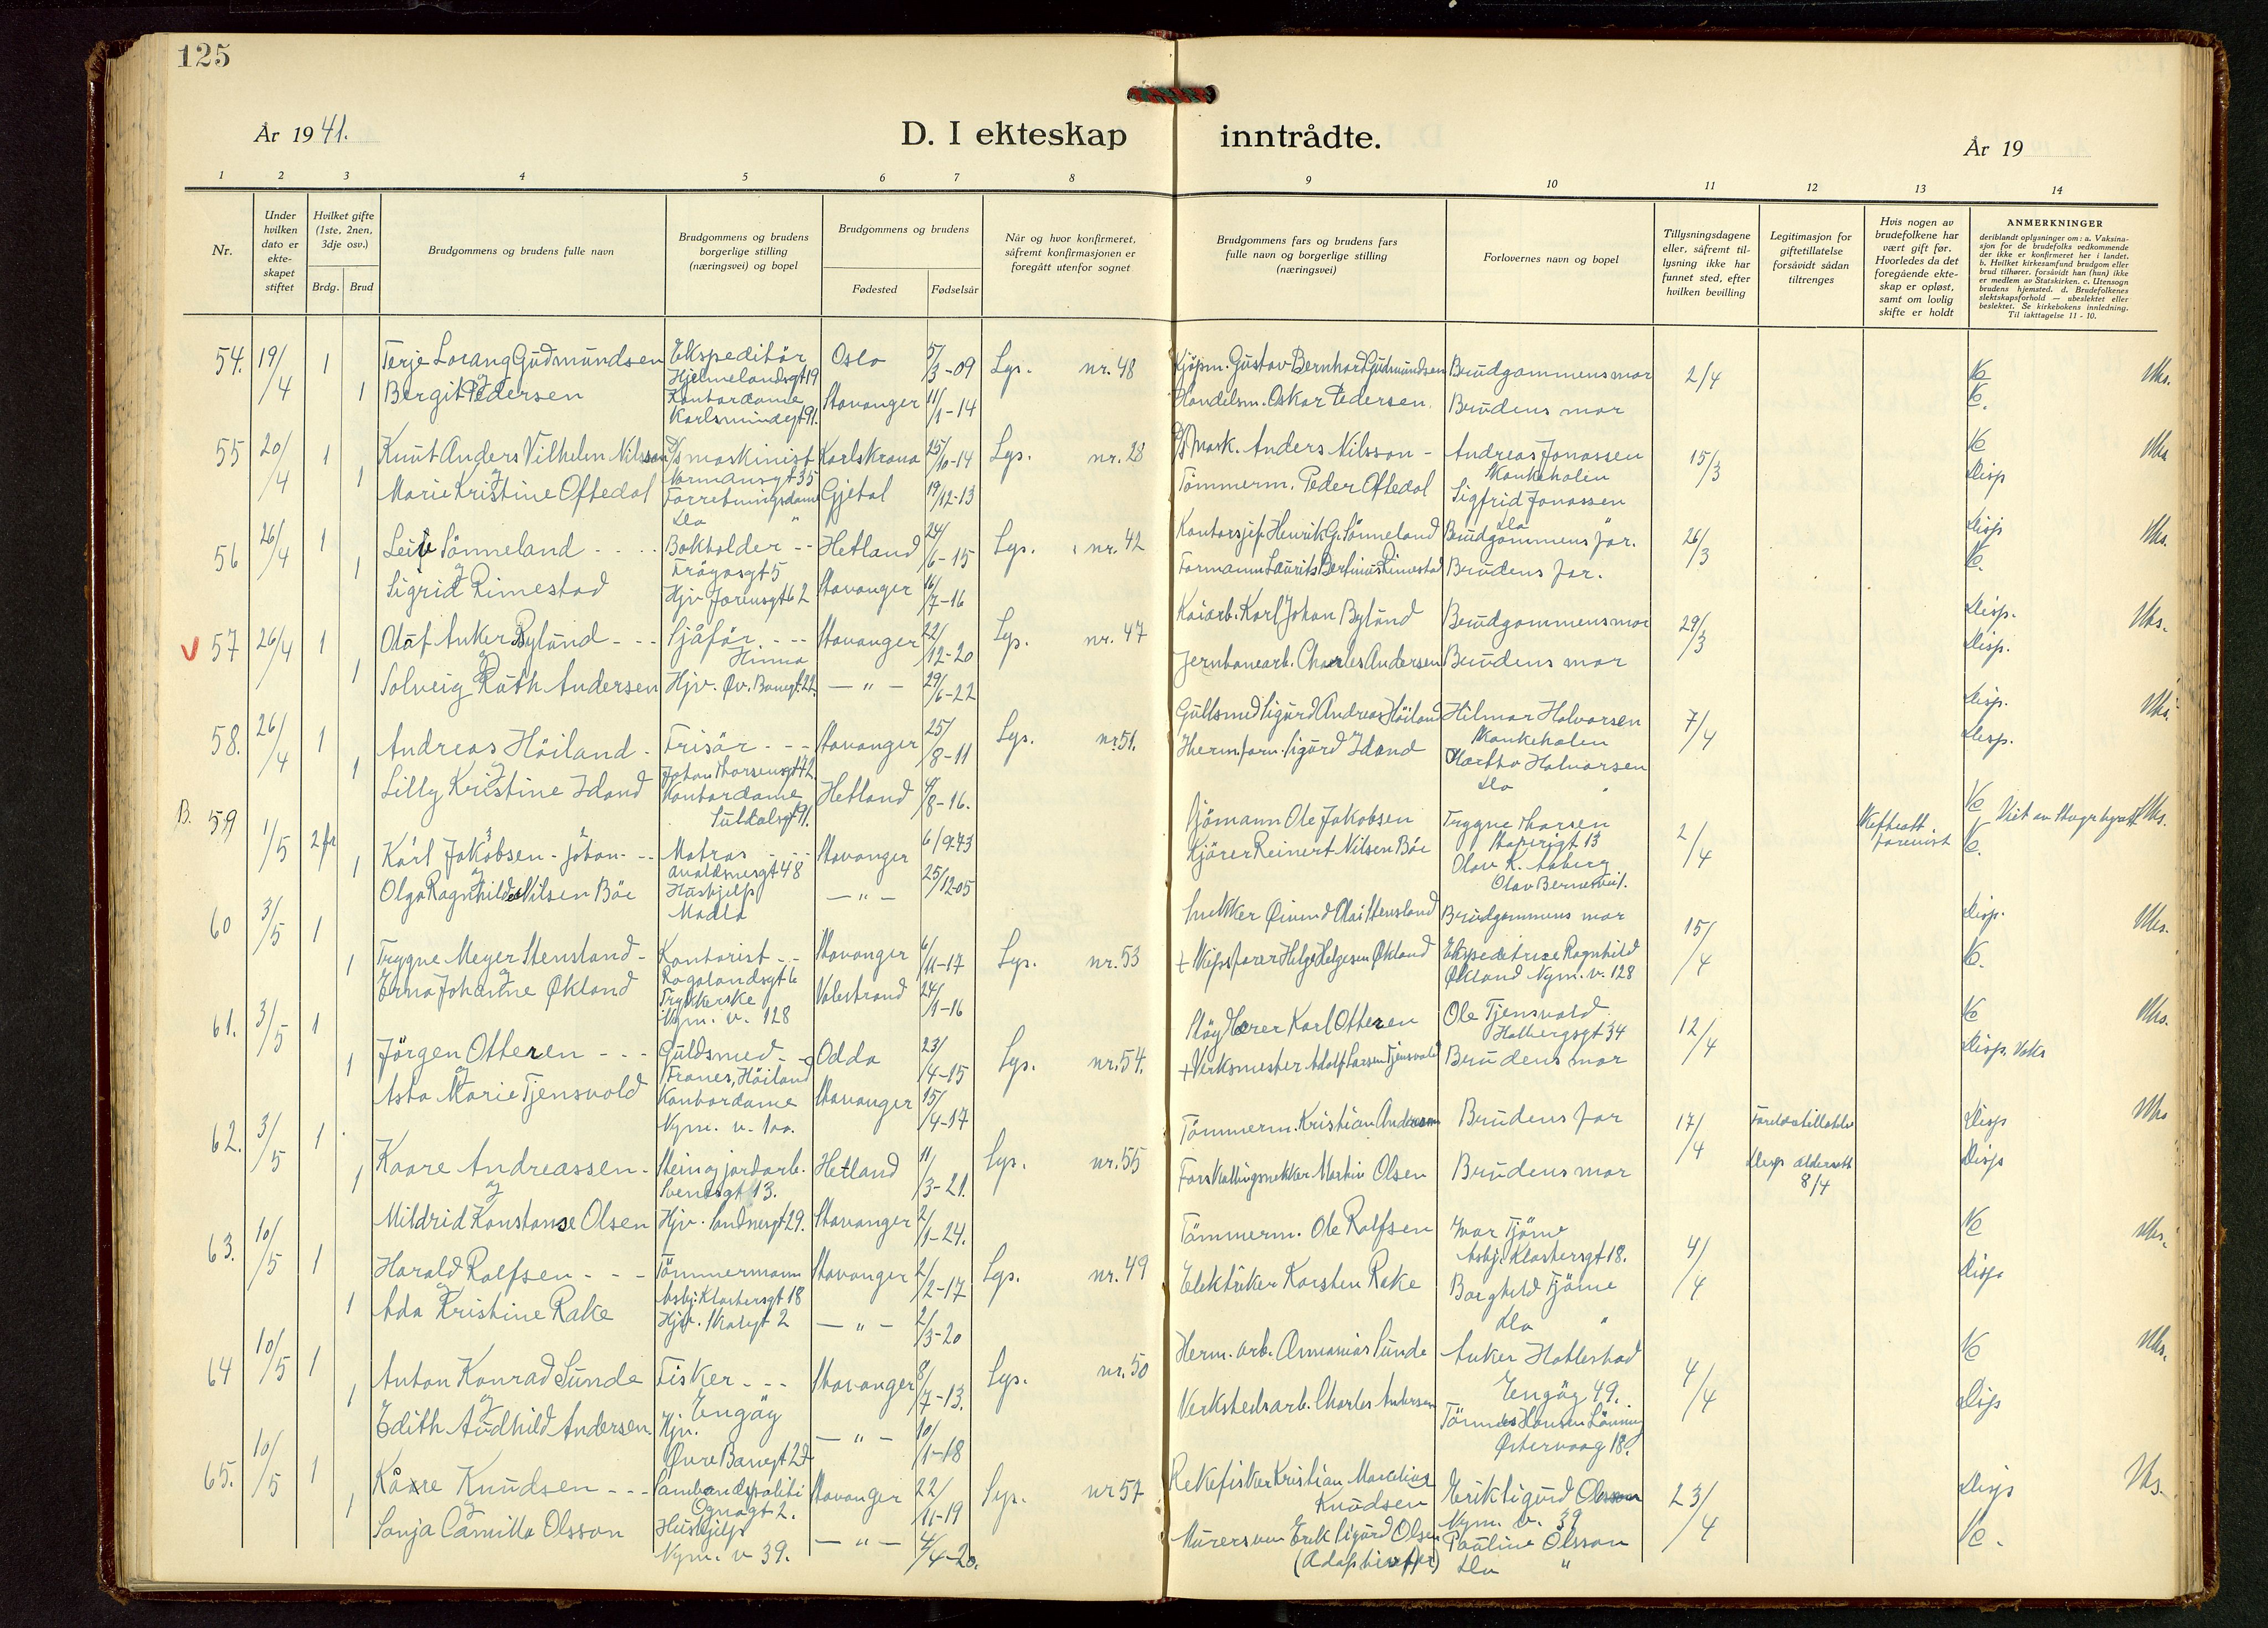 125
År 1941.
D. I ekteskap inntrådte.
År 19
1 2 3 4 5 6 7 8 9 10 11 12 13 14
Nr.
Under hvilken dato er ekte-skapet stiftet
Hvilket gifte (1ste, 2nen, 3dje osv.)
Brdg. Brud
Brudgommens og brudens fulle navn
Brudgommens og brudens borgerlige stilling (næringsvei) og bopel
Brudgommens og brudens
Fødested
Fødselsår
Når og hvor konfirmeret, såfremt konfirmasjonen er foregått utenfor sognet
Brudgommens fars og brudens fars fulle navn og borgerlige stilling (næringsvei)
Forlovernes navn og bopel
Tillysningsdagene eller, såfremt til-lysning ikke har funnet sted, efter hvilken bevilling
Legitimasjon for giftetillatelse forsåvidt sådan tiltrenges
Hvis nogen av brudefolkene har vært gift før. Hvorledes da det foregående ekte-skap er opløst, samt om lovlig skifte er holdt
ANMERKNINGER
deriblandt oplysninger om: a. Vaksina-sjon for de brudefolks vedkommende der ikke er konfirmeret her i landet. b. Hvilket kirkesamfund brudgom eller brud tilhører, forsåvidt han (hun) ikke er medlem av Statskirken. c. Utensogn brudens hjemsted. d. Brudefolkenes slektskapsforhold — ubeslektet eller beslektet. Se kirkebokens innledning. Til iakttagelse 11 - 10.
54. 19/4 1 Terje Lorang Gudmundsen Ekspeditör Hjelmelandsgt 19 Oslo 5/3-09 Lys. nr. 48 Kjöpm. Gustav Bernhard Gudmundsen Brudgommens mor 2/4
og
1 Bergit Pedersen Kontordame Karlsmindegt 91. Stavanger 11/1-14 Handelsm. Oskar Pedersen. Brudens mor
55 20/4 1 Knut Anders Vilhelm Nilsson maskinist Normansgt 35 Karlskrona 25/10-14 Lys. nr. 28 Mask. Anders Nilsson - Andreas Jonassen Kankeholen 15/3
og
1 Marie Kristine Oftedal Forretningsdame do " Gjetal 19/12-13 Tömmerm. Peder Oftedal Sigfrid Jonassen do Disp
56 26/4 1 Leif Sönneland Bokholder Fröyasgt 5 Hetland 24/6-15 Lys. nr. 42 Kontorsjef Henrik G. Sönneland Brudgommens far. 26/3 Disp
og
1 Sigrid Rimestad Hjv Jorensgt 62 Stavanger 16/7-16 Formann Laurits Bertinius Rimestad Brudens far.
V 57 26/4 1 Olaf Anker Bylund Sjåför Hinna Stavanger 22/12-20 Lys. nr. 47 Kaiarb. Karl Johan Bylund Brudgommens mor 29/3 Disp.
og
1 Solveig Ruth Andersen Hjv. Øv. Banegt. 22 — " — 29/6-22 Jernbanearb. Charles Andersen Brudens mor Disp.
58. 26/4 1 Andreas Höiland Frisör Johan Thorsensgt 42 Stavanger 25/8-11 Lys. nr 51. Gullsmed Sigurd Andreas Höiland Hilmar Halvorsen Kankeholen 7/4 Disp.
og
1 Lilly Kristine Idand Kontordame Suldalsgt 91. Hetland 4/8-16. Herm.form. Sigurd Idand Martha Halvorsen do " Disp.
B. 59 1/5 2 fr Karl Jakobsen - Johan Matros Avaldsnesgt 48 Stavanger 6/9-73 Sjömann Ole Jakobsen Trygve Thorsen 13 2/4
og
1 Olga Ragnhild Nilsen Böe Hushjelp Madla — " — 25/12-05 Kjörer Reinert Nilsen Böe Olav K. Aaberg
60 3/5 1 Trygve Meyer Stensland Kontorist Rogalandsgt 6 Stavanger 6/11-17 Lys. nr. 53 Snekker Øivind Olai Stensland Brudgommens mor 15/4 Disp.
og
1 Erna Johanne Økland Trykkerske Nym. v. 128 Valestrand 24/1-16 + Skipsförer Helge Helgesen Økland Ekspeditrise Ragnhild Økland Nym. v. 128
61. 3/5 1 Jörgen Otteren Guldsmed Franes, Höiland Odda 23/4-15 Lys. nr. 54. Karl Otteren Ole Tjensvold Holbergsgt 34 12/4
og
1 Asta Marie Tjensvold Kontordame Nym. v. 100. Stavanger 15/4-17 + Verksmester Adolf Larsen Tjensvold Brudens mor Disp. Vaks
62. 3/5 1 Kaare Andreassen Stein og jordarb. Svendsgt 13. Hetland 11/3-21. Lys. nr. 55 Tömmerm. Kristian Andreassen Brudens far 17/4 Foreldretillatelse Disp
og
1 Mildrid Konstanse Olsen Hjv. Sandnesgt 29. Stavanger 2/1-24. Forskallingsnekker Martin Olsen Brudens mor Disp aldersatt 8/4 Disp
63. 10/5 1 Harald Rolfsen Tömmermann Asbj. Klostersgt 18 Stavanger 2/2-17 Lys. nr. 49 Tömmerm. Ole Rolfsen Ivar Tjöme Asbj. Klostersgt 18. 4/4
og
1 Ada Kristine Rake Hjv. Skolegt 2 — " — 2/3-20 Elektriker Karsten Rake Borghild Tjöme do " Disp
64 10/5 1 Anton Konrad Sunde Fisker Engöy Stavanger 8/7-13. Lys. nr. 50 Herm. arb. Ommarius Sunde Anker Hatlestad Engöy 49. 4/4
og
1 Edith Audhild Andersen Hjv. Øvre Banegt 22 — " — 10/1-18 Verkstedsarb. Charles Andersen Tönnes Hansen Lönning Østervaag 18. Disp
65. 10/5 1 Kåre Knudsen Sambandspoliti Ognagt 2. Stavanger 22/11-19 Lys. nr 57 Rekefisker Kristian Marelius Knudsen Erik Sigurd Olsson Nym. v. 39 23/4 Disp
og
1 Sonja Camilla Olsson Hushjelp Nym. v 39. — " — 4/4-20. Murersven Erik Sigurd Olsen (Adoptivfar) Pauline Olsson do "